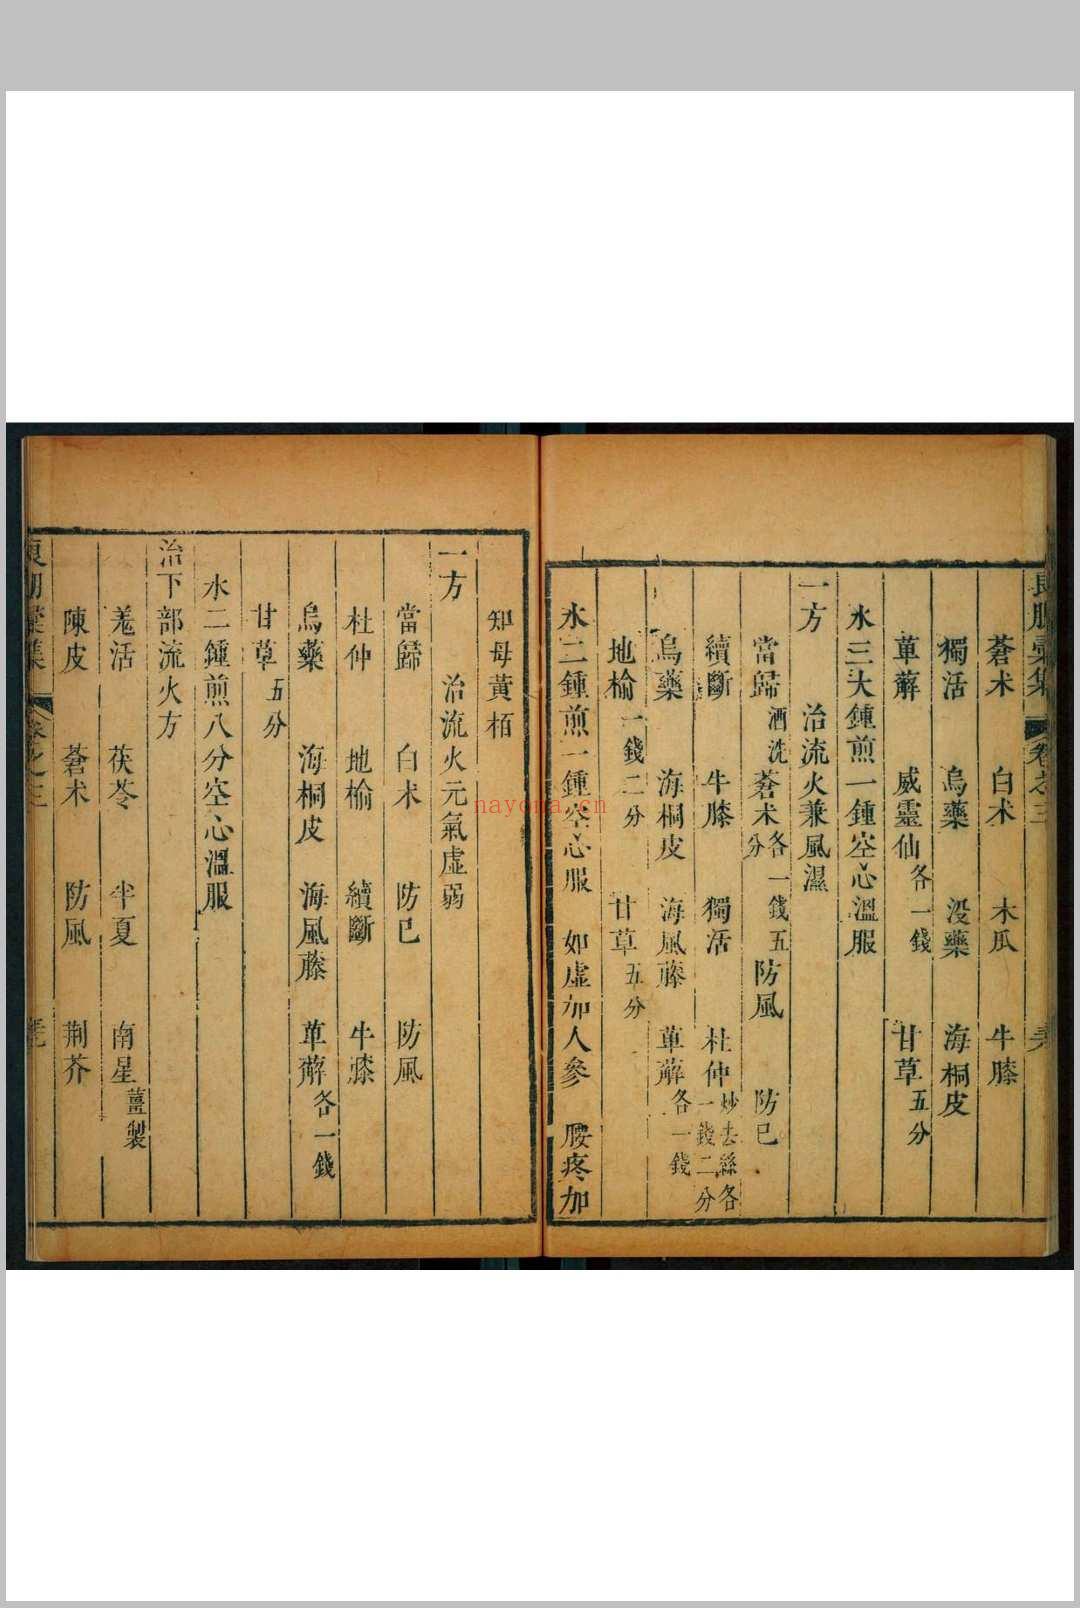 蒼术 白术 木瓜 牛膝
獨活 烏藥 沒藥 海桐皮
萆薢 威靈仙各一錢 甘草五分
水三大鍾煎一鍾空心溫服
一方 治流火兼風濕
當歸酒洗 蒼术各一錢五分 防風 防已
續斷 牛膝 獨活 杜仲炒去絲各一錢二分
烏藥 海桐皮 海風藤 萆薢各一錢
地榆一錢二分 甘草五分
水二鍾煎一鍾空心服 如虛加人參 腰疼加
知母黃栢
一方 治流火元氣虛弱
當歸 白术 防已 防風
杜仲 地榆 續斷 牛膝
烏藥 海桐皮 海風藤 萆薢各一錢
甘草五分
水二鍾煎八分空心溫服
治下部流火方
羗活 茯苓 半夏 南星薑製
陳皮 蒼术 防風 荆芥
彙集 卷之三
nayona.cn